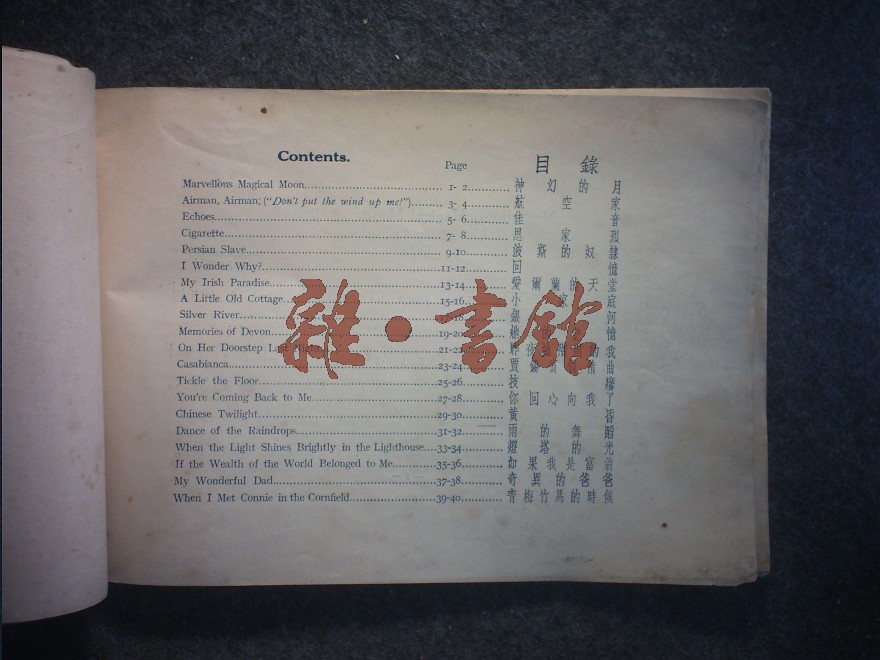 Contents.
Page 目錄
Marvellous Magical Moon 1- 2 神幻的月
Airman, Airman; ("Don't put the wind up me!") 3- 4 航空家
Echoes 5- 6 佳音
Cigarette 7- 8 家烈
Persian Slave 9-10 波斯的奴隸
I Wonder Why? 11-12 回憶
My Irish Paradise 13-14 愛爾蘭的天堂
A Little Old Cottage 15-16 小家庭
Silver River 銀河
Memories of Devon 19-20 憶
On Her Doorstep Last Night 21-22 昨夜我
Casabianca 23-24 賈曲
Tickle the Floor 25-26 技癢
You're Coming Back to Me 27-28 你回心向我了
Chinese Twilight 29-30 黃昏
Dance of the Raindrops 31-32 雨的舞蹈
When the Light Shines Brightly in the Lighthouse 33-34 燈塔的光
If the Wealth of the World Belonged to Me 35-36 如果我是富翁
My Wonderful Dad 37-38 奇異的爸爸
When I Met Connie in the Cornfield 39-40 青梅竹馬的時候
雜·書館